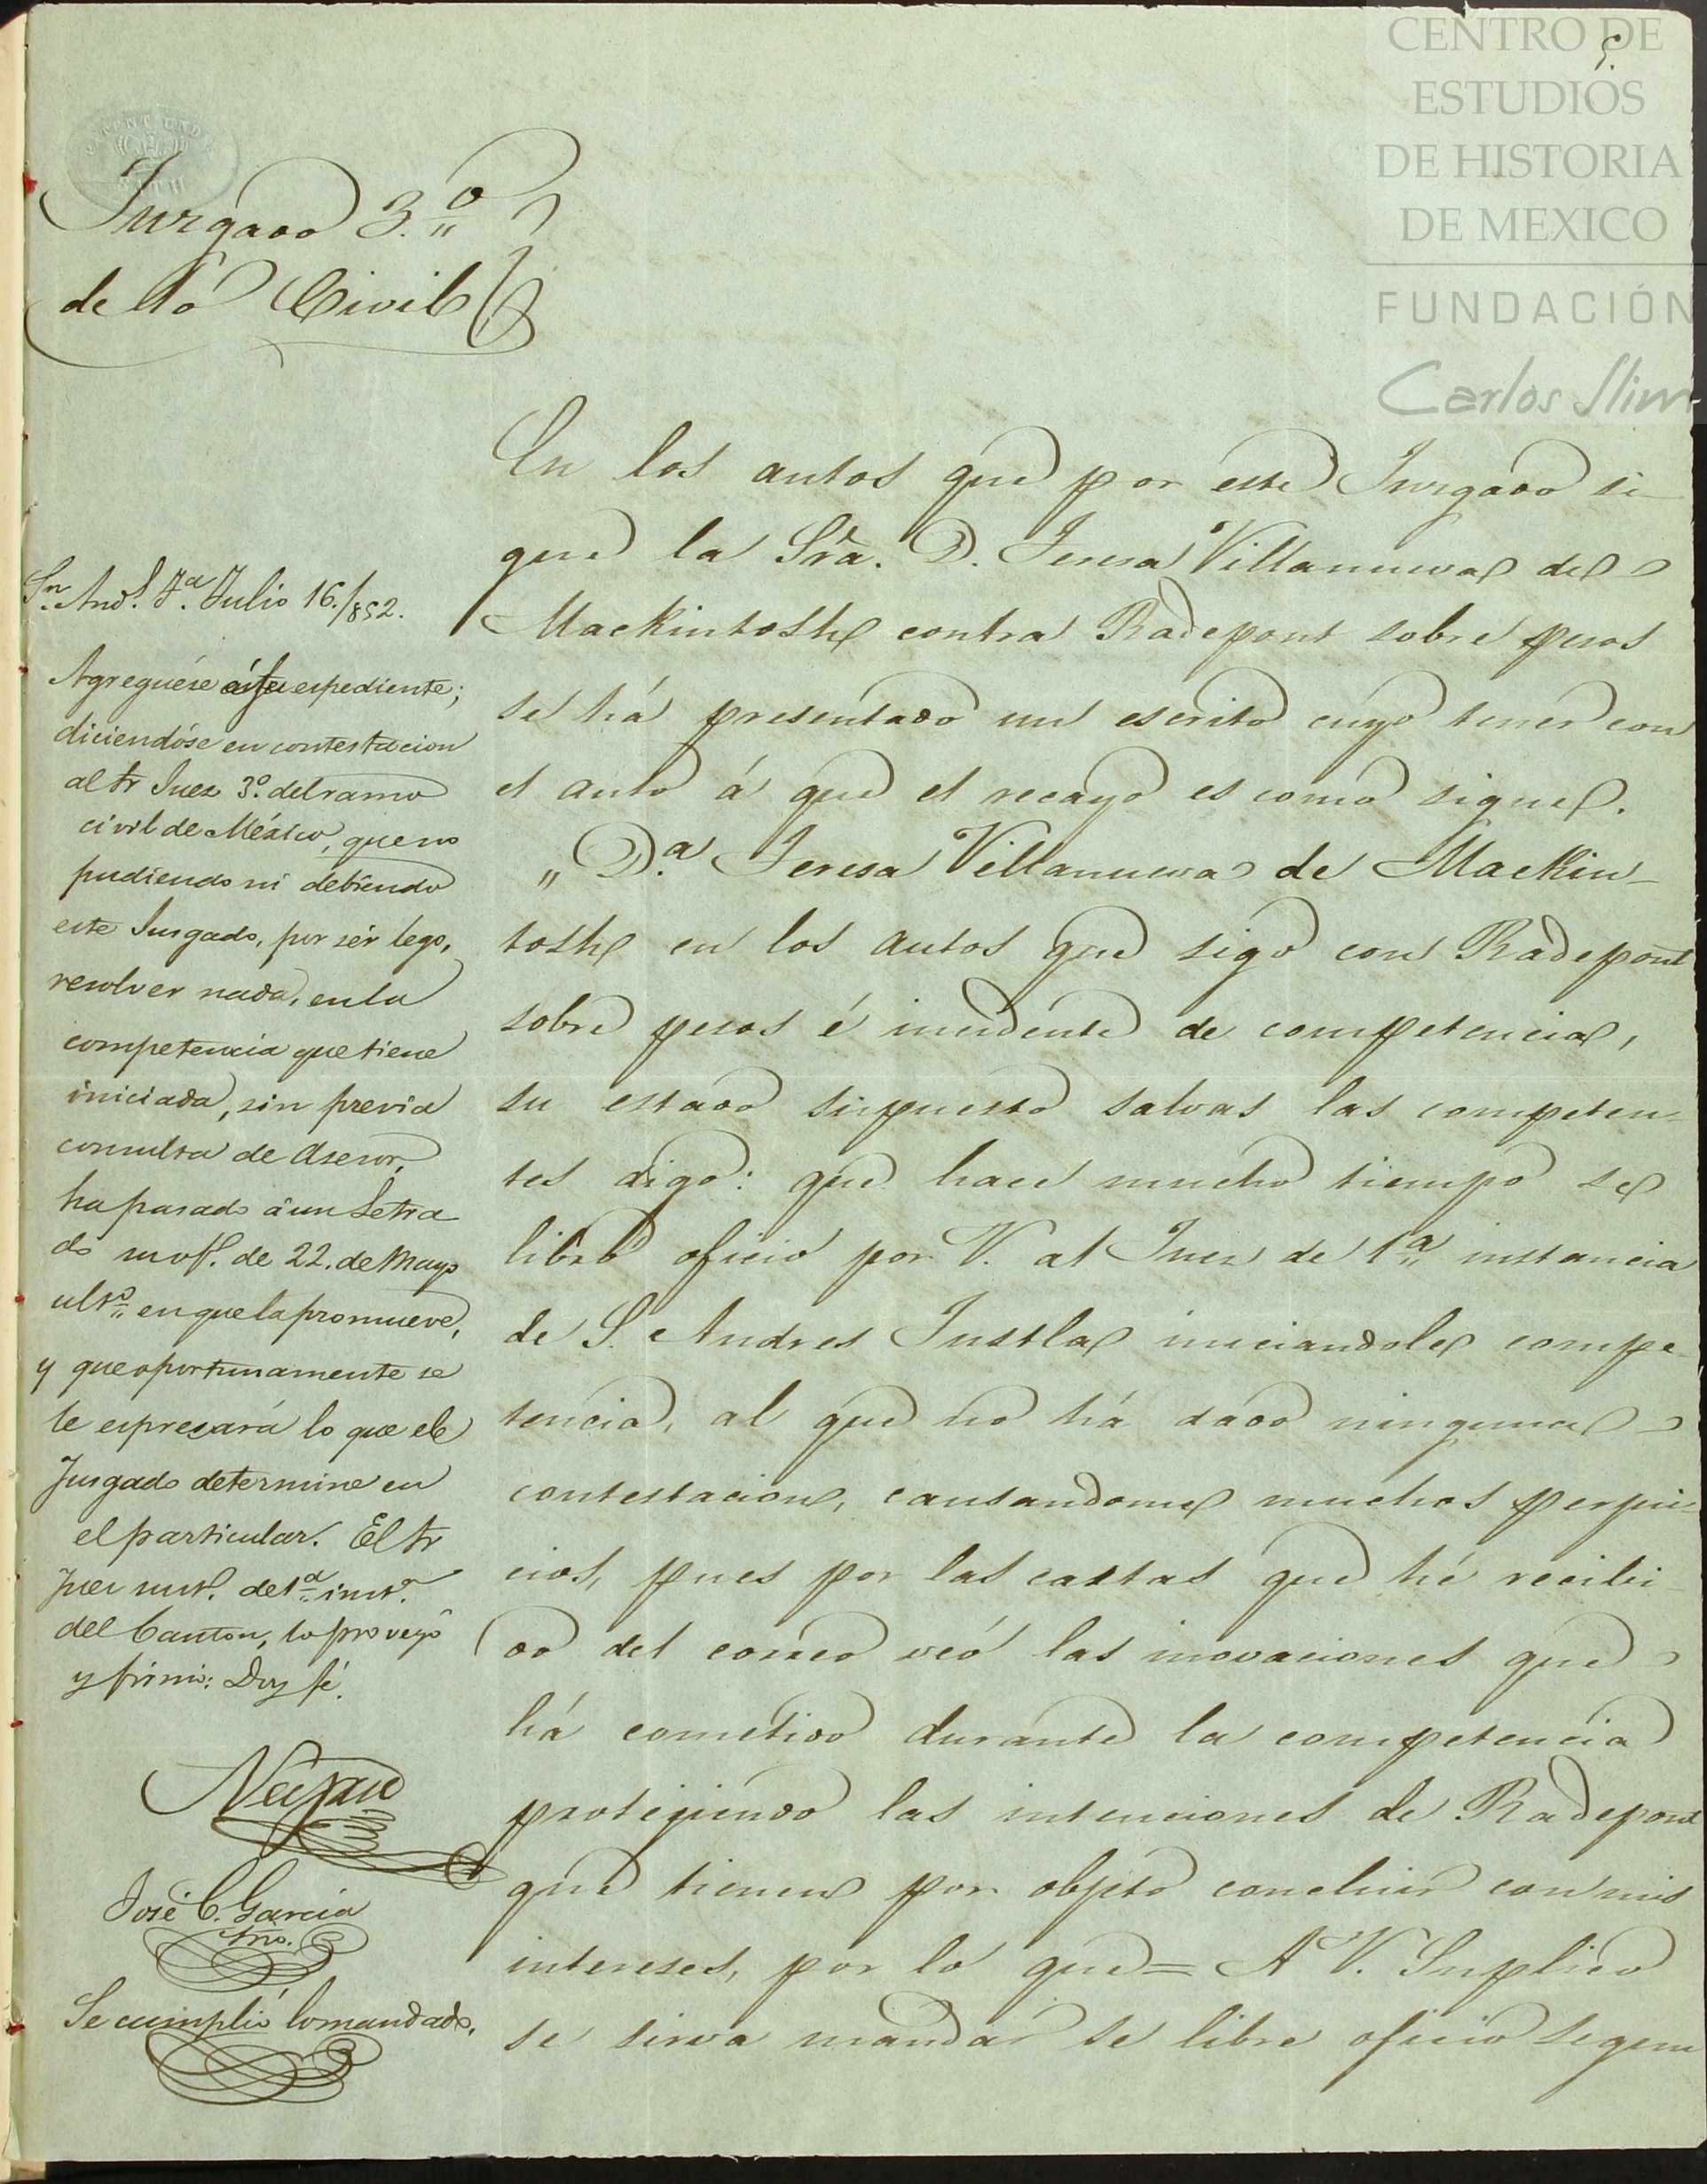 CENTRO DE
ESTUDIOS
DE HISTORIA
DE MEXICO
FUNDACIÓN
Carlos Slim
5.
Jurgado 3.º
de lo Civil
Sn. And.s T.a Julio 16./852.
Agreguése á su espediente;
diciendóse en contestacion
al Sr Juez 3.º del ramo
civil de México, que no
pudiendo ni debiendo
este Jusgado, por sér lego,
resolver nada, en la
competencia que tiene
iniciada, sin previa
consulta de Asesor,
ha pasado á un Letra
do su of.º de 22. de Mayo
ult.º en que la promueve,
y que oportunamente se
le espresará lo que el
Jusgado determine en
el particular. El Sr
Juez sust.º de 1.a inst.a
del Canton, lo proveyó
y firmó: Doy fé.
José C. García
Srio.
Se cumplió lo mandado.
En los autos que por este Jurgado si-
gue la Sra. D. Teresa Villanueva de
Mackintosh contra Radepont sobre pesos
se há presentado un escrito cuyo tenor con
el auto á que el recayo es como sigue.
„ D.a Teresa Villanueva de Mackin-
tosh en los autos que sigo con Radepont
sobre pesos é incidente de competencia,
su estado supuesto salvas las competen-
tes digo: que hace mucho tiempo se
libró oficio por V. al Juez de 1.a instancia
de S. Andres Tustla iniciandole compe-
tencia, al que no há dado ninguna
contestacion, causandome muchos perjui-
cios, pues por las cartas que hé recibi-
do del correo veó las inovaciones que
há cometido durante la competencia
protejiendo las intenciones de Radepont
que tienen por objeto concluir con mis
intereses, por lo que = A V. Suplico
se sirva mandar se libre oficio segun